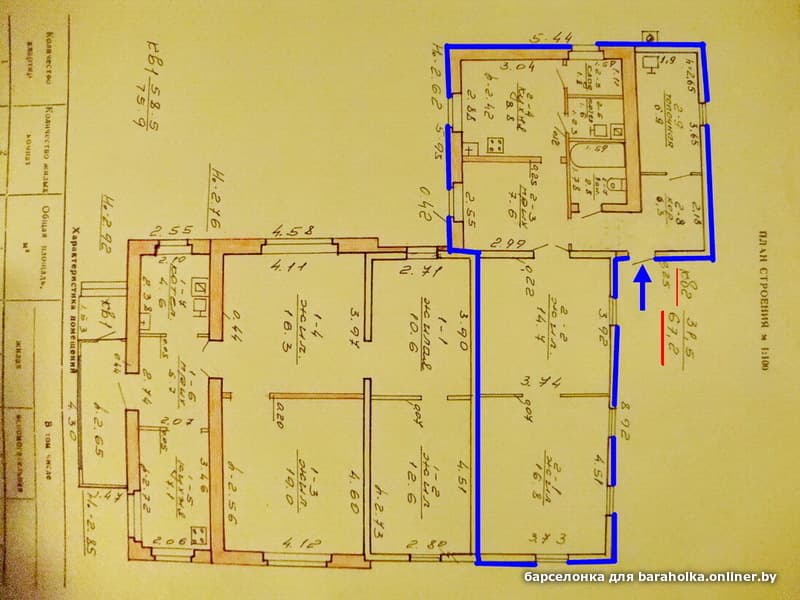 ПЛАН СТРОЕНИЯ М 1:100
кв1 58.5
75.9
кв2 38.5
67.2
5.44
3.04
h-2.42
2-4
8.8
2.85
1.9
2.65
3.65
2-9
топочная
2-8
кор.
6.3
2.18
1.59
2-3
7.6
2.55
2.99
5.95
Н-2.62
0.42
2-2
жил
14.4
3.92
3.74
8.92
2-1
жил
16.8
4.51
3.73
Н-2.76
Н-2.92
2.55
4.58
4.11
1-4
жил
16.3
3.97
0.44
2.71
1-1
жилая
10.6
3.90
1-7
2.38
1-6
5.7
2.74
2.07
1-5
кухня
7.1
3.46
h-2.72
2.06
0.20
1-3
жил
19.0
4.60
h-2.56
4.12
1-2
жил
12.6
4.51
h-2.73
2.80
кв1
1.63
h-2.65
4.30
1.47
Н-2.85
Характеристика помещений
Количество квартир
Количество жилых комнат
Общая площадь, м²
В том числе
жилая
вспомогательная
барселонка для baraholka.onliner.by